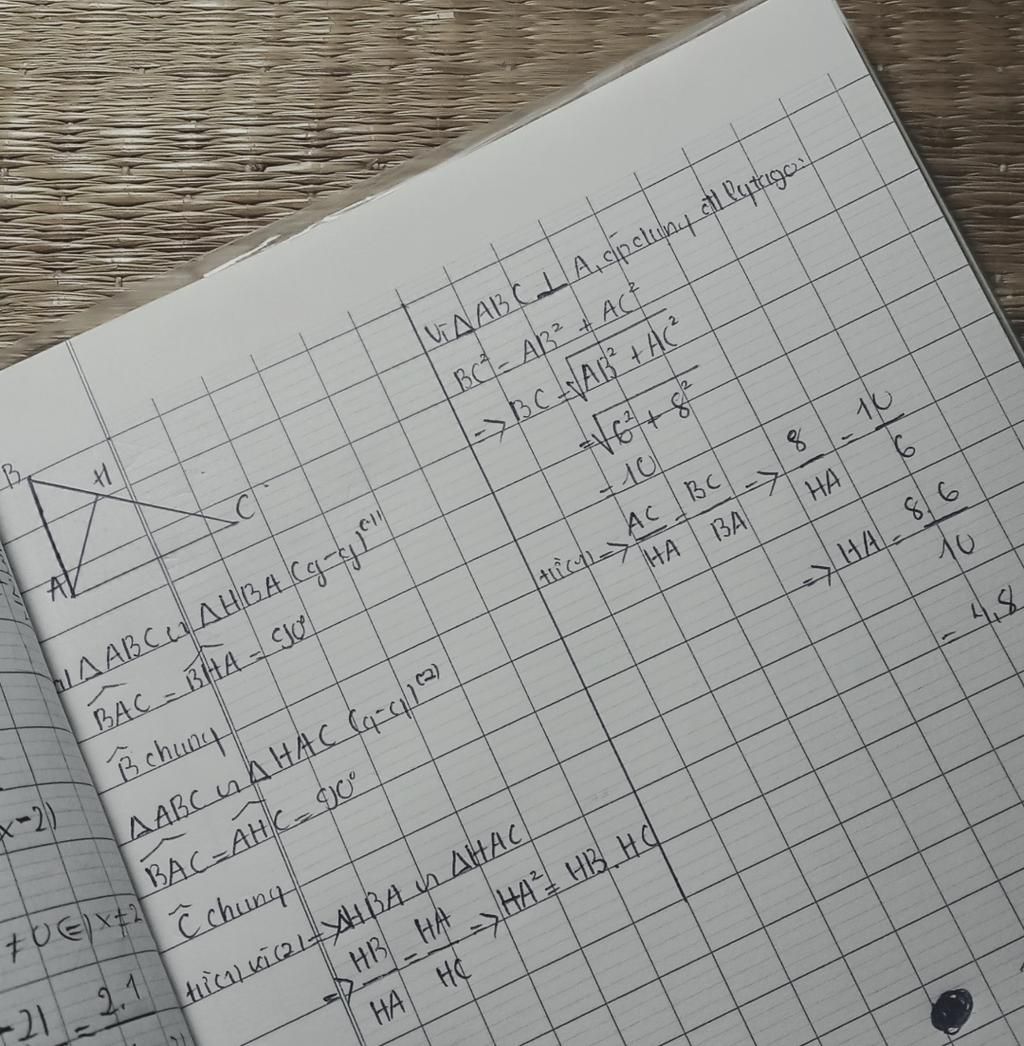 B
H
C
A
ΔABC ∽ ΔHBA (g-g) (1)
BAC = BHA = 90°
B chung
ΔABC ∽ ΔHAC (g-g) (2)
BAC = AHC = 90°
C chung
từ (1) và (2) => ΔHBA ∽ ΔHAC
=> HB/HA = HA/HC => HA² = HB.HC
Vì ΔABC ⊥ A, áp dụng đl Pytago:
BC² = AB² + AC²
=> BC = √AB² + AC²
= √6² + 8²
= 10
từ (1) => AC/HA = BC/BA => 8/HA = 10/6
=> HA = 8.6/10
= 4,8
x-2)
≠ 0 <=> x ≠ 2
= 2.1